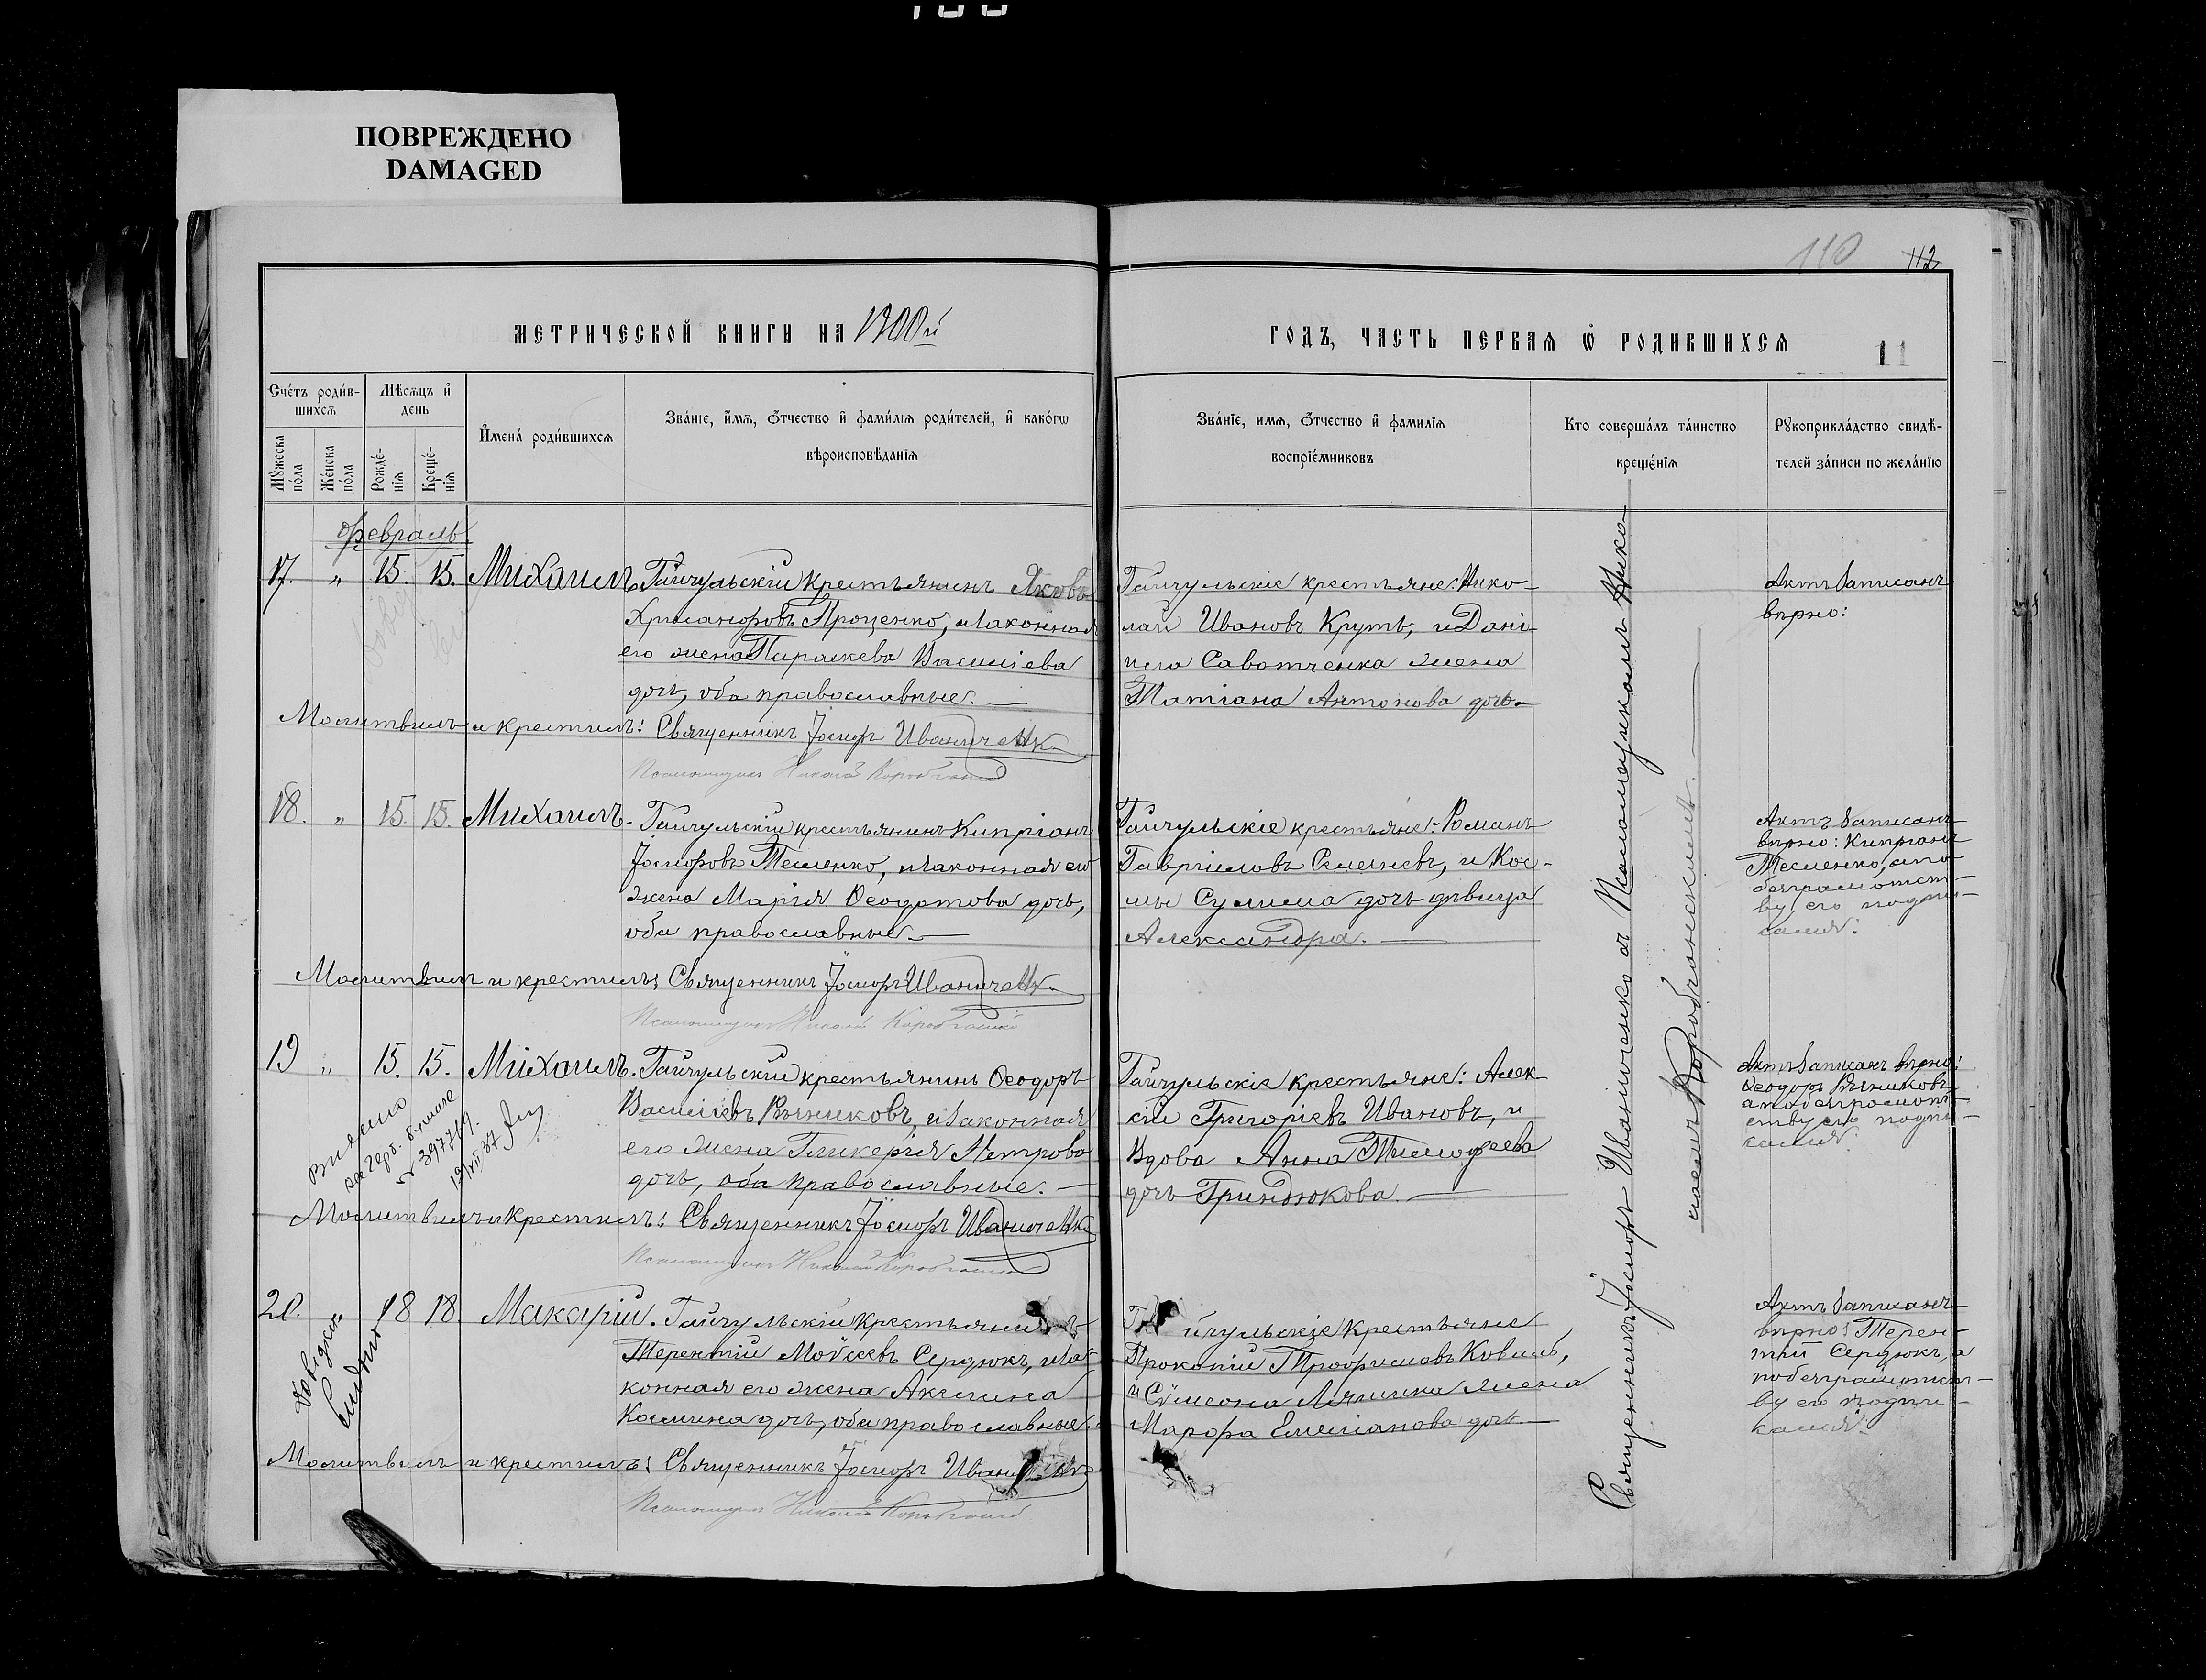 ПОВРЕЖДЕНО
DAMAGED
110
112
МЕТРИЧЕСКОЙ КНИГИ НА 1900й
ГОДЪ, ЧАСТЬ ПЕРВАЯ Ѽ РОДИВШИХСЯ
11
Счетъ родив-
шихся
Мѣсяцъ и
день
Мужеска
пола
Женска
пола
Рожде-
нія
Креще-
нія
Имена родившихся
Званіе, имя, отчество и фамилія родителей, и какогѡ
вѣроисповѣданія
Званіе, имя, отчество и фамилія
воспріемниковъ
Кто совершалъ таинство
крещенія
Рукоприкладство свидѣ-
телей записи по желанію
Февраль
17. " 15. 15. Михаилъ
Гайчульскій крестьянинъ Яковъ
Хрисанфовъ Проценко, и законная
его жена Параскева Василіева
дочь, оба православные.
Молитвилъ и крестилъ: Священникъ Іосифъ Иваниченко
Псаломщикъ Николай
Гайчульскіе крестьяне: Нико-
лай Ивановъ Крутъ, и Дані-
ила Савотченка жена
Татіана Антонова дочь
Актъ записанъ
вѣрно:
18. " 15. 15. Михаилъ
Гайчульскій крестьянинъ Кипріанъ
Іосифовъ Тесленко, и законная его
жена Марія Ѳеодотова дочь,
оба православные.
Молитвилъ и крестилъ: Священникъ Іосифъ Иваниченко
Псаломщикъ Николай
Гайчульскіе крестьяне: Романъ
Гавріиловъ Селезневъ, и Кос-
мы Сулима дочь дѣвица
Александра.
Актъ записанъ
вѣрно: Кипріанъ
Тесленко, а по
безграмотст-
ву его подпи-
19 " 15. 15. Михаилъ.
Гайчульскій крестьянинъ Ѳеодоръ
Василіевъ Вѣниковъ, и законная
его жена Гликерія Петрова
дочь, оба православные.
Молитвилъ и крестилъ: Священникъ Іосифъ Иваниченко
Псаломщикъ Николай
№ 397769
Гайчульскіе крестьяне: Алек
сій Григоріевъ Ивановъ, и
Вдова Анна Тимофеева
дочь Гриндюкова.
Актъ записанъ вѣрно:
Ѳеодоръ Вѣниковъ
а по безграмот-
ству его подпи-
20. " 18 18. Макарій.
Гайчульскій крестьянинъ
Терентій Мойсеевъ Сердюкъ, и за-
конная его жена Акилина
Космина дочь, оба православные.
Молитвилъ и крестилъ: Священникъ Іосифъ
Псаломщикъ Николай
Гайчульскіе крестьяне
Прокопій Трофимовъ Коваль,
и Сѵмеона Лямика жена
Марфа Емеліанова дочь
Актъ записанъ
вѣрно: Терен-
тій Сердюкъ, а
по безграмотст-
ву его подпи-
Священникъ Іосифъ Иваниченко съ Псаломщикомъ Нико-
лаемъ